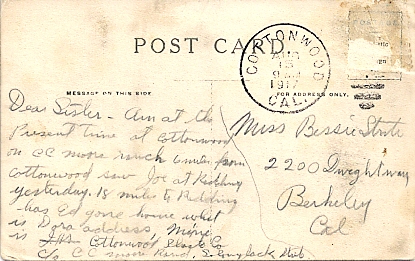 POST CARD.
COTTONWOOD
AUG
15
1911
CAL.
MESSAGE ON THIS SIDE
FOR ADDRESS ONLY.
Dear Sister - Am at the
Present time at Cottonwood
on CC more ranch 6 miles from
Cottonwood saw Joe at Redding
yesterday. 18 miles to Redding
- has Ed gone home what
is Dora address, Mine
is Cottonwood, Shasta Co
c/o CC more Ranch.
Miss Bessie
2200 Dwight way
Berkeley
Cal